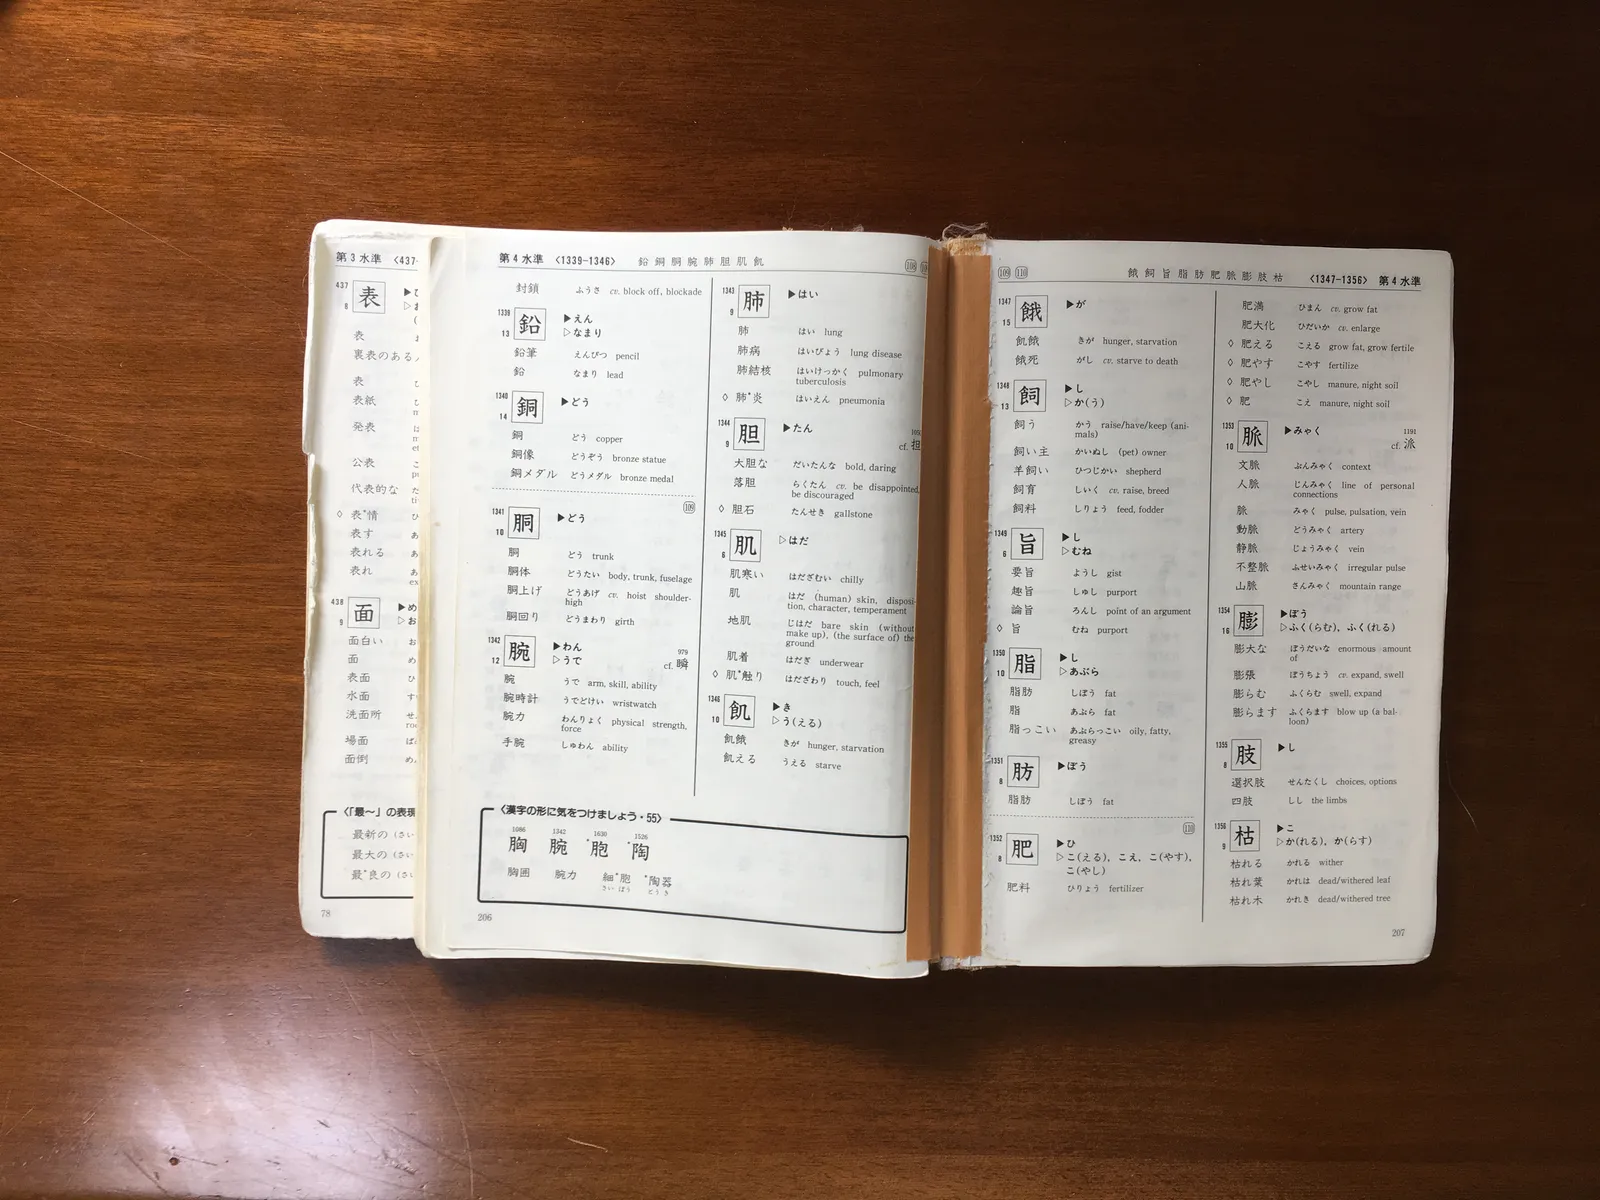 第3水準 〈437-
437
8
表
表
裏表のある
表
表紙
発表
公表
代表的な
◇ 表*情
表す
表れる
表れ
438
9
面
面白い
面
表面
水面
洗面所
場面
面倒
〈「最〜」の表現
最新の (さい
最大の (さい
最*良の (さい
78
第4水準 〈1339-1346〉 鉛銅胴腕肺胆肌飢
封鎖 ふうさ cv. block off, blockade
1339
13
鉛 ▶えん
▷なまり
鉛筆 えんぴつ pencil
鉛 なまり lead
1340
14
銅 ▶どう
銅 どう copper
銅像 どうぞう bronze statue
銅メダル どうメダル bronze medal
109
1341
10
胴 ▶どう
胴 どう trunk
胴体 どうたい body, trunk, fuselage
胴上げ どうあげ cv. hoist shoulder-
high
胴回り どうまわり girth
1342
12
腕 ▶わん
▷うで
979
cf. 瞬
腕 うで arm, skill, ability
腕時計 うでどけい wristwatch
腕力 わんりょく physical strength,
force
手腕 しゅわん ability
1343
9
肺 ▶はい
肺 はい lung
肺病 はいびょう lung disease
肺結核 はいけっかく pulmonary
tuberculosis
◇ 肺*炎 はいえん pneumonia
1344
9
胆 ▶たん
cf. 担
大胆な だいたんな bold, daring
落胆 らくたん cv. be disappointed,
be discouraged
◇ 胆石 たんせき gallstone
1345
6
肌 ▷はだ
肌寒い はだざむい chilly
肌 はだ (human) skin, disposi-
tion, character, temperament
地肌 じはだ bare skin (without
make up), (the surface of) the
ground
肌着 はだぎ underwear
◇ 肌*触り はだざわり touch, feel
1346
10
飢 ▶き
▷う(える)
飢餓 きが hunger, starvation
飢える うえる starve
〈漢字の形に気をつけましょう・55〉
1086 1342 1630 1526
胸 腕 *胞 *陶
胸囲 腕力 細*胞 *陶器
さいぼう とうき
206
109 110 餓飼旨脂肪肥脈膨肢枯 〈1347-1356〉 第4水準
1347
15
餓 ▶が
飢餓 きが hunger, starvation
餓死 がし cv. starve to death
1348
13
飼 ▶し
▷か(う)
飼う かう raise/have/keep (ani-
mals)
飼い主 かいぬし (pet) owner
羊飼い ひつじかい shepherd
飼育 しいく cv. raise, breed
飼料 しりょう feed, fodder
1349
6
旨 ▶し
▷むね
要旨 ようし gist
趣旨 しゅし purport
論旨 ろんし point of an argument
◇ 旨 むね purport
1350
10
脂 ▶し
▷あぶら
脂肪 しぼう fat
脂 あぶら fat
脂っこい あぶらっこい oily, fatty,
greasy
1351
8
肪 ▶ぼう
脂肪 しぼう fat
110
1352
8
肥 ▶ひ
▷こ(える), こえ, こ(やす),
こ(やし)
肥料 ひりょう fertilizer
肥満 ひまん cv. grow fat
肥大化 ひだいか cv. enlarge
◇ 肥える こえる grow fat, grow fertile
◇ 肥やす こやす fertilize
◇ 肥やし こやし manure, night soil
◇ 肥 こえ manure, night soil
1353
10
脈 ▶みゃく
1191
cf. 派
文脈 ぶんみゃく context
人脈 じんみゃく line of personal
connections
脈 みゃく pulse, pulsation, vein
動脈 どうみゃく artery
静脈 じょうみゃく vein
不整脈 ふせいみゃく irregular pulse
山脈 さんみゃく mountain range
1354
16
膨 ▶ぼう
▷ふく(らむ), ふく(れる)
膨大な ぼうだいな enormous amount
of
膨張 ぼうちょう cv. expand, swell
膨らむ ふくらむ swell, expand
膨らます ふくらます blow up (a bal-
loon)
1355
8
肢 ▶し
選択肢 せんたくし choices, options
四肢 しし the limbs
1356
9
枯 ▶こ
▷か(れる), か(らす)
枯れる かれる wither
枯れ葉 かれは dead/withered leaf
枯れ木 かれき dead/withered tree
207